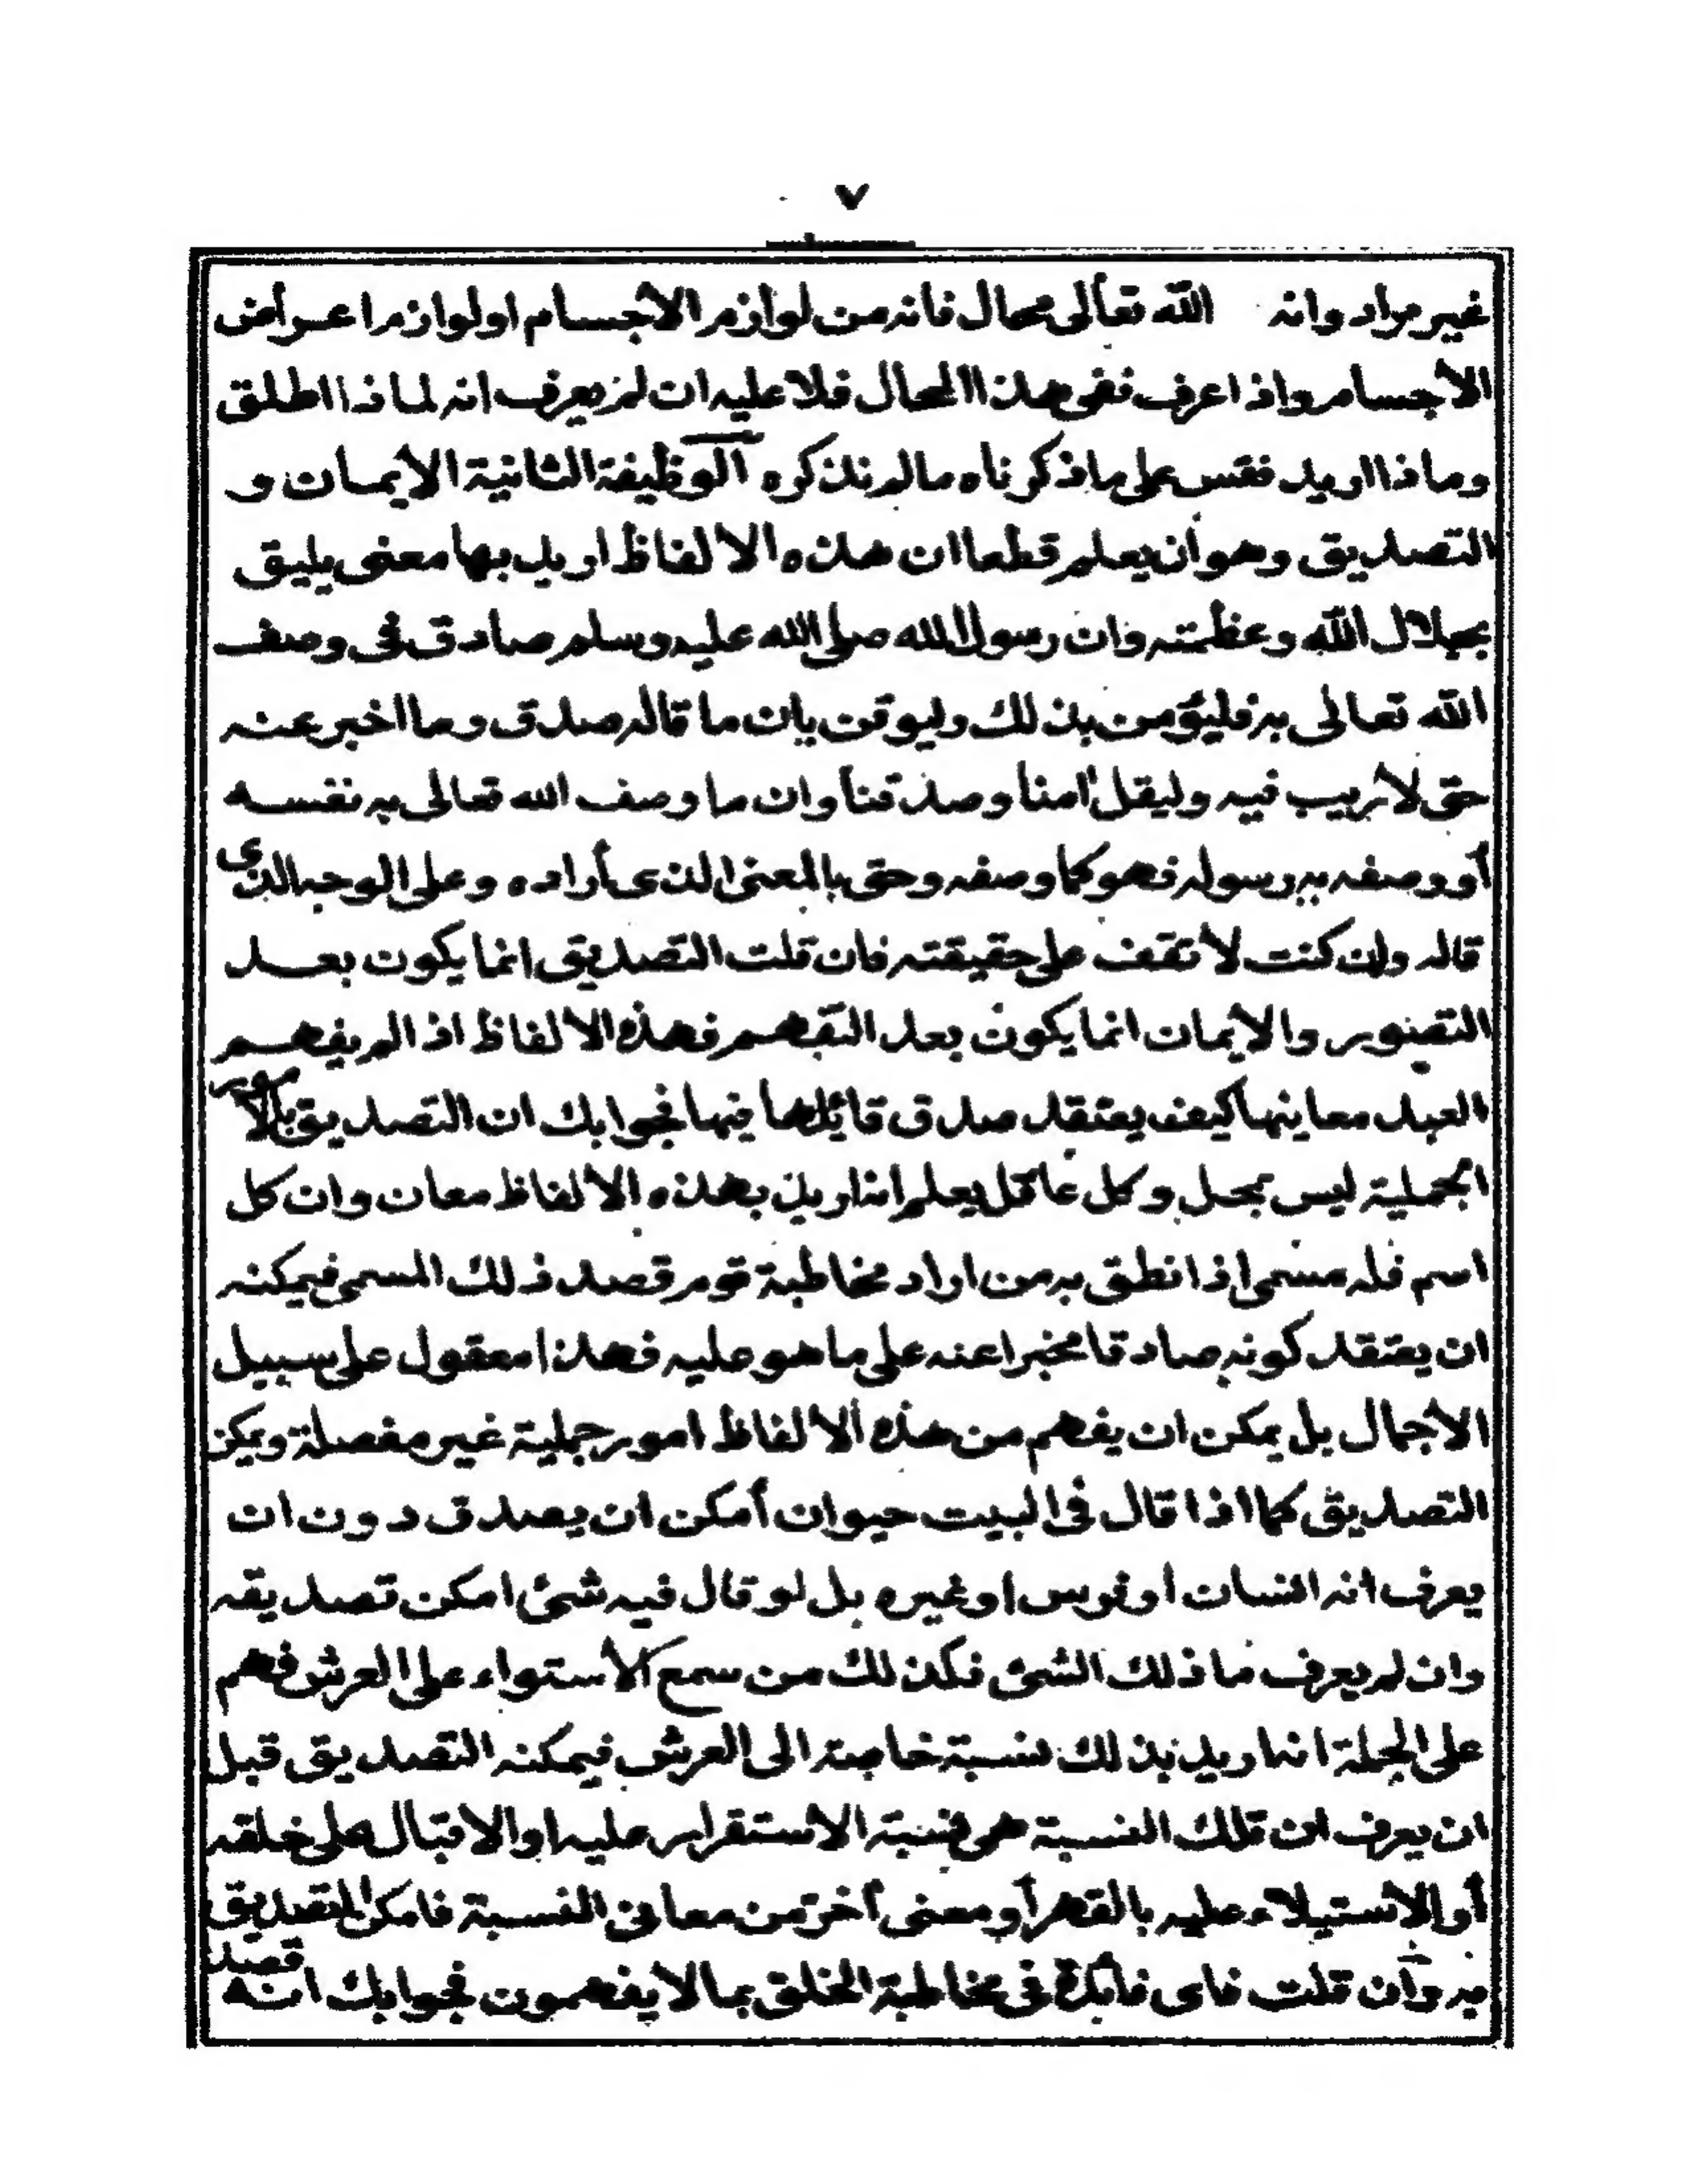 ٧
غير مراد وانه الله تعالى محال فانه من لوازم الأجسام او لوازم اعراض
الأجسام واذا عرف نفى هذا المحال فلا عليه ان لم يعرف انه لماذا اطلق
وماذا اريد فقس على ما ذكرناه ما لم نذكره الوظيفة الثانية الأيمان و
التصديق وهو أن يعلم قطعا ان هذه الالفاظ اريد بها معنى يليق
بجلال الله وعظمته وان رسول الله صلى الله عليه وسلم صادق فى وصف
الله تعالى به فليؤمن بذلك وليوقن بان ما قاله صدق وما اخبر عنه
حق لا ريب فيه وليقل امنا وصدقنا وان ما وصف الله تعالى به نفسه
أو وصفه به رسوله فهو كما وصفه وحق بالمعنى الذى أراده وعلى الوجه الذى
قاله وان كنت لا تقف على حقيقته فان قلت التصديق انما يكون بعد
التصوير والأيمان انما يكون بعد التفهم فهذه الالفاظ اذا لم يفهم
العبد معاينها كيف يعتقد صدق قائلها فيها فجوابك ان التصديق بالأمور
الجملية ليس بمحال وكل عاقل يعلم انه اريد بهذه الالفاظ معان وان كل
اسم فله مسمى اذا نطق به من اراد مخاطبة قوم قصد ذلك المسمى فيمكنه
ان يعتقد كونه صادقا مخبرا عنه على ما هو عليه فهذا معقول على سبيل
الأجمال بل يمكن ان يفهم من هذه الالفاظ امور جملية غير مفصلة ويمكن
التصديق كما اذا قال فى البيت حيوان أمكن ان يصدق دون ان
يعرف انه انسان أو فرس او غيره بل لو قال فيه شئ امكن تصديقه
وان لم يعرف ما ذلك الشئ فكذلك من سمع الأستواء على العرش فهم
على الجملة انه اريد بذلك نسبة خاصة الى العرش فيمكنه التصديق قبل
ان يعرف ان تلك النسبة هى نسبة الاستقرار عليه او الاقبال على خلقه
أو الأستيلاء عليه بالقهر أو معنى أخر من معانى النسبة فامكن التصديق
به وأن قلت فاى فائدة فى مخاطبة الخلق بما لا يفهمون فجوابك انه قصد